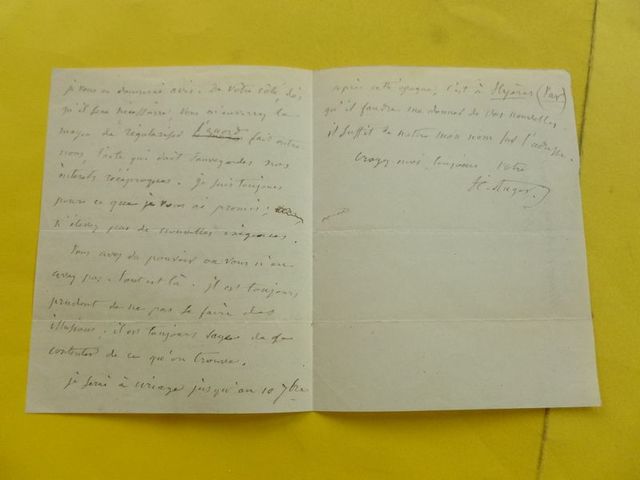 je vous en donnerai avis. De votre côté, dès
qu'il sera nécessaire, vous m'ouvrirez le
moyen de régulariser l'accord fait entre
nous, l'acte qui doit sauvegarder nos
intérêts réciproques. Je suis toujours
pour ce que je vous ai promis;
n'élevez pas de nouvelles exigences.
Vous avez du pouvoir ou vous n'en
avez pas. Tout est là. Il est toujours
prudent de ne pas se faire des
illusions; il est toujours sage de se
contenter de ce qu'on trouve.
je serai à Uriage jusqu'au 10 7bre
après cette époque, c'est à Hyères (Var)
qu'il faudra me donner de vos nouvelles.
il suffit de mettre mon nom sur l'adresse.
Croyez moi, toujours, votre